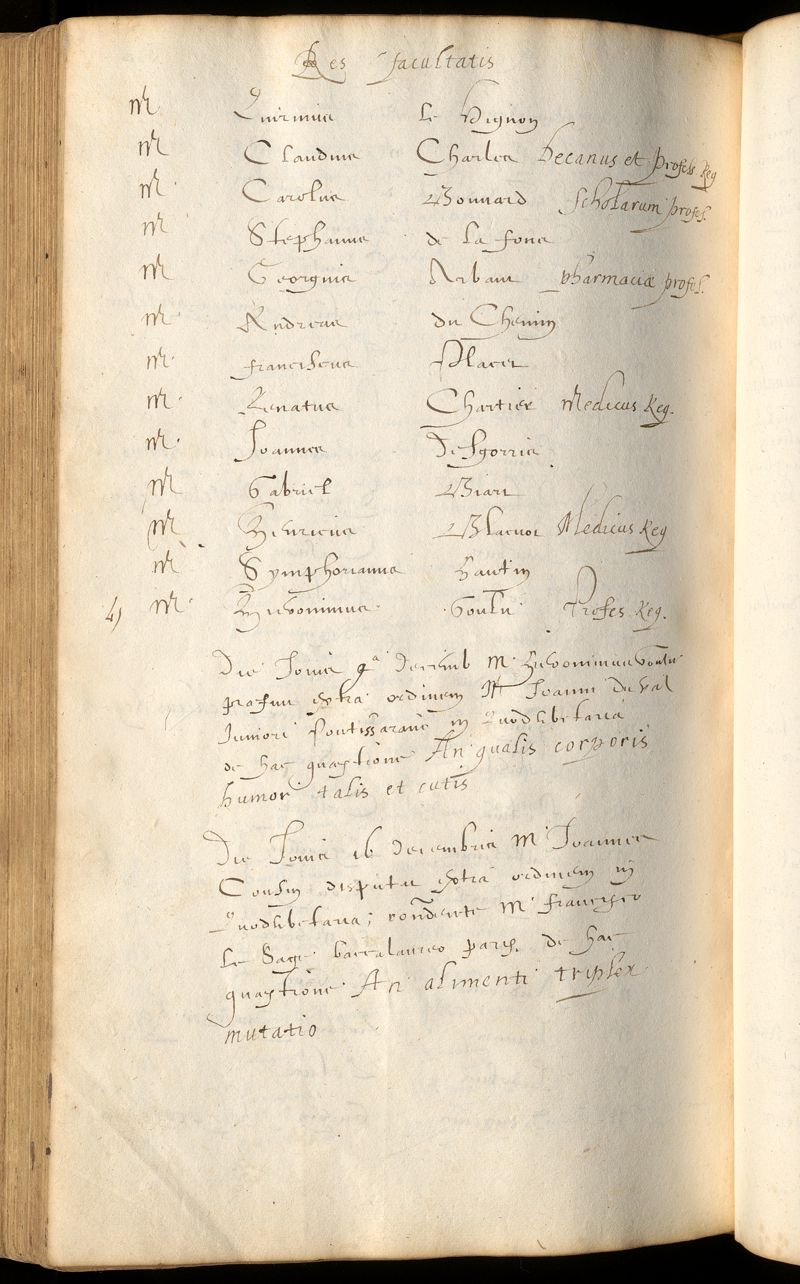 Res facultatis
Mr Quirinus le Vignon
Mr Claudius Charles Decanus et profess. Reg
Mr. Carolus Bouvard scholarum profes.
Mr. Stephanus de la fons
Mr Georgius Arbaut pharmaciæ profes.
Mr. Andreas du Chemin
Mr. franciscus Placet
Mr. Renatus Chartier Medicus Reg.
Mr. Joannes Desgorris
Mr Gabriel Biart
Mr Henricus Blacuot Medicus Reg
Mr. Symphorianus Hautin
Mr. Hieronimus Goulu Profes. Reg.
Die Jovis 9a decemb M. Hieronimus Goulu
præfuit extra ordinem Mro Joanni du val
Juniori Pontissarano in Quodlibetaria
de hac quæstione An qualis corporis
humor talis et cutis
Die Jovis 16 decembris M. Joannes
Cousin disputavit extra ordinem in
Quodlibetaria; respondente M. francisco
le Sage baccalaureo paris. de hac
quæstione An alimenti triplex
mutatio